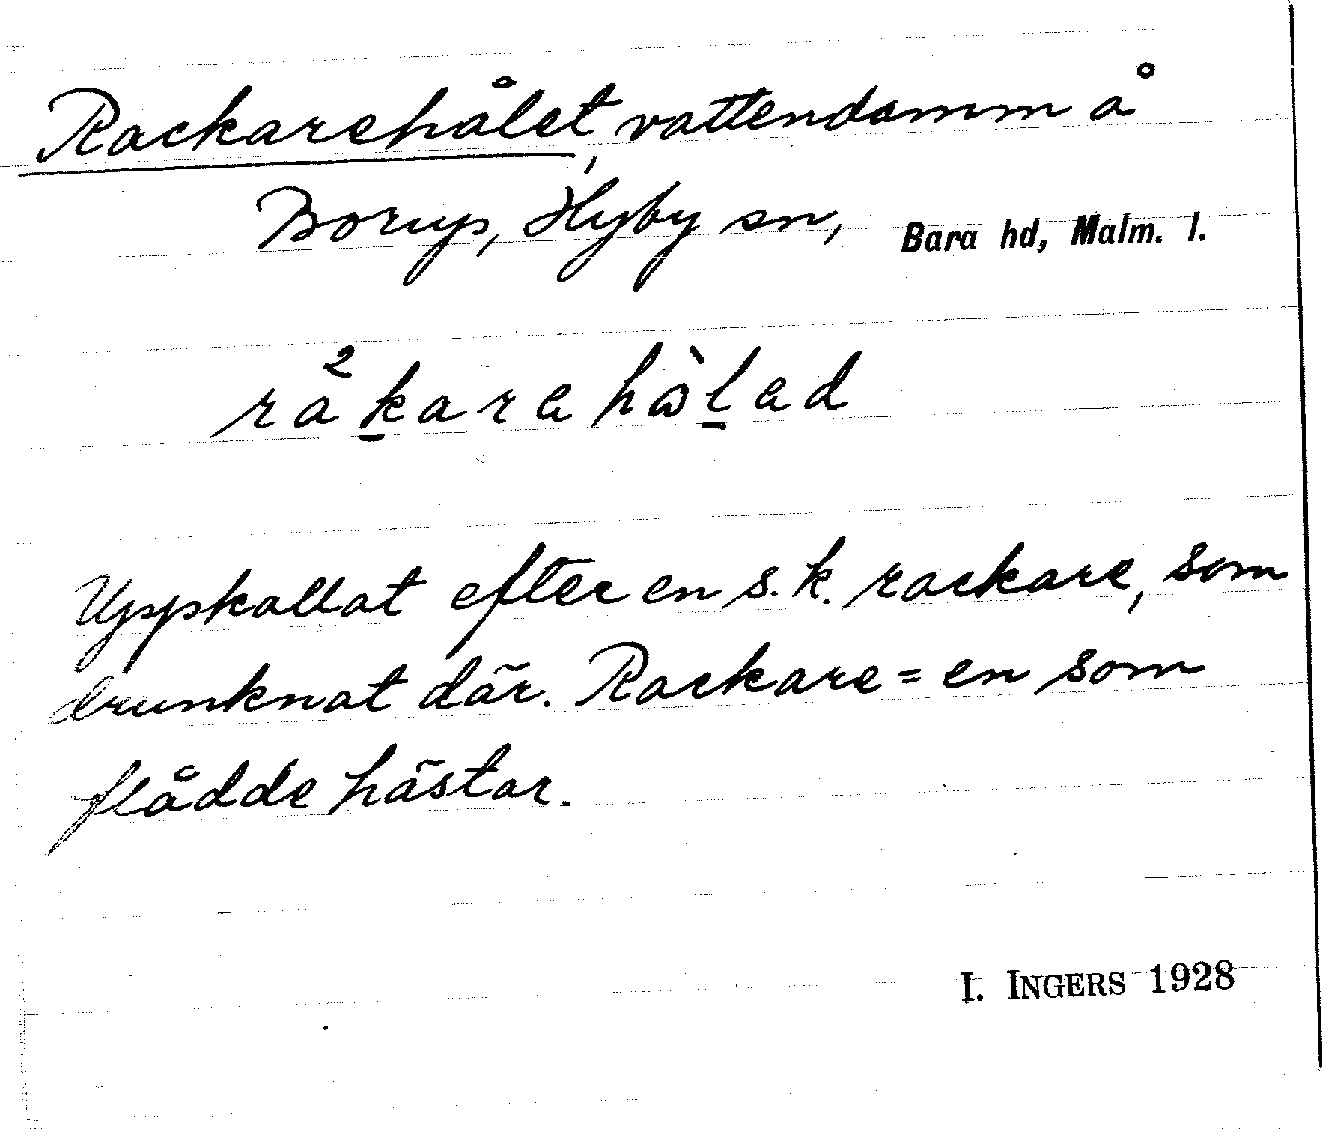 Rackarehålet, vattendamm å
Borup, Hyby sn, Bara hd, Malm. l.
Uppkallat efter en s.k. rackare, som
drunknat där. Rackare = en som
flådde hästar.
I. INGERS 1928